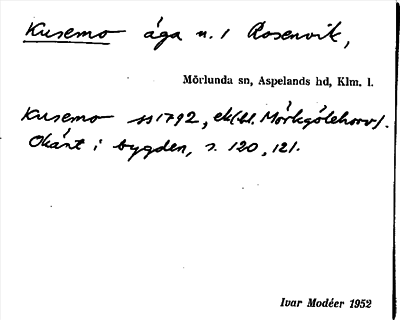 Kusemo äga n. 1 Rosenvik,
Mörlunda sn, Aspelands hd, Klm. l.
Kusemo ss 1792, ek(bl. Mörkgölehorv).
Okänt i bygden, s. 120, 121.
Ivar Modéer 1952